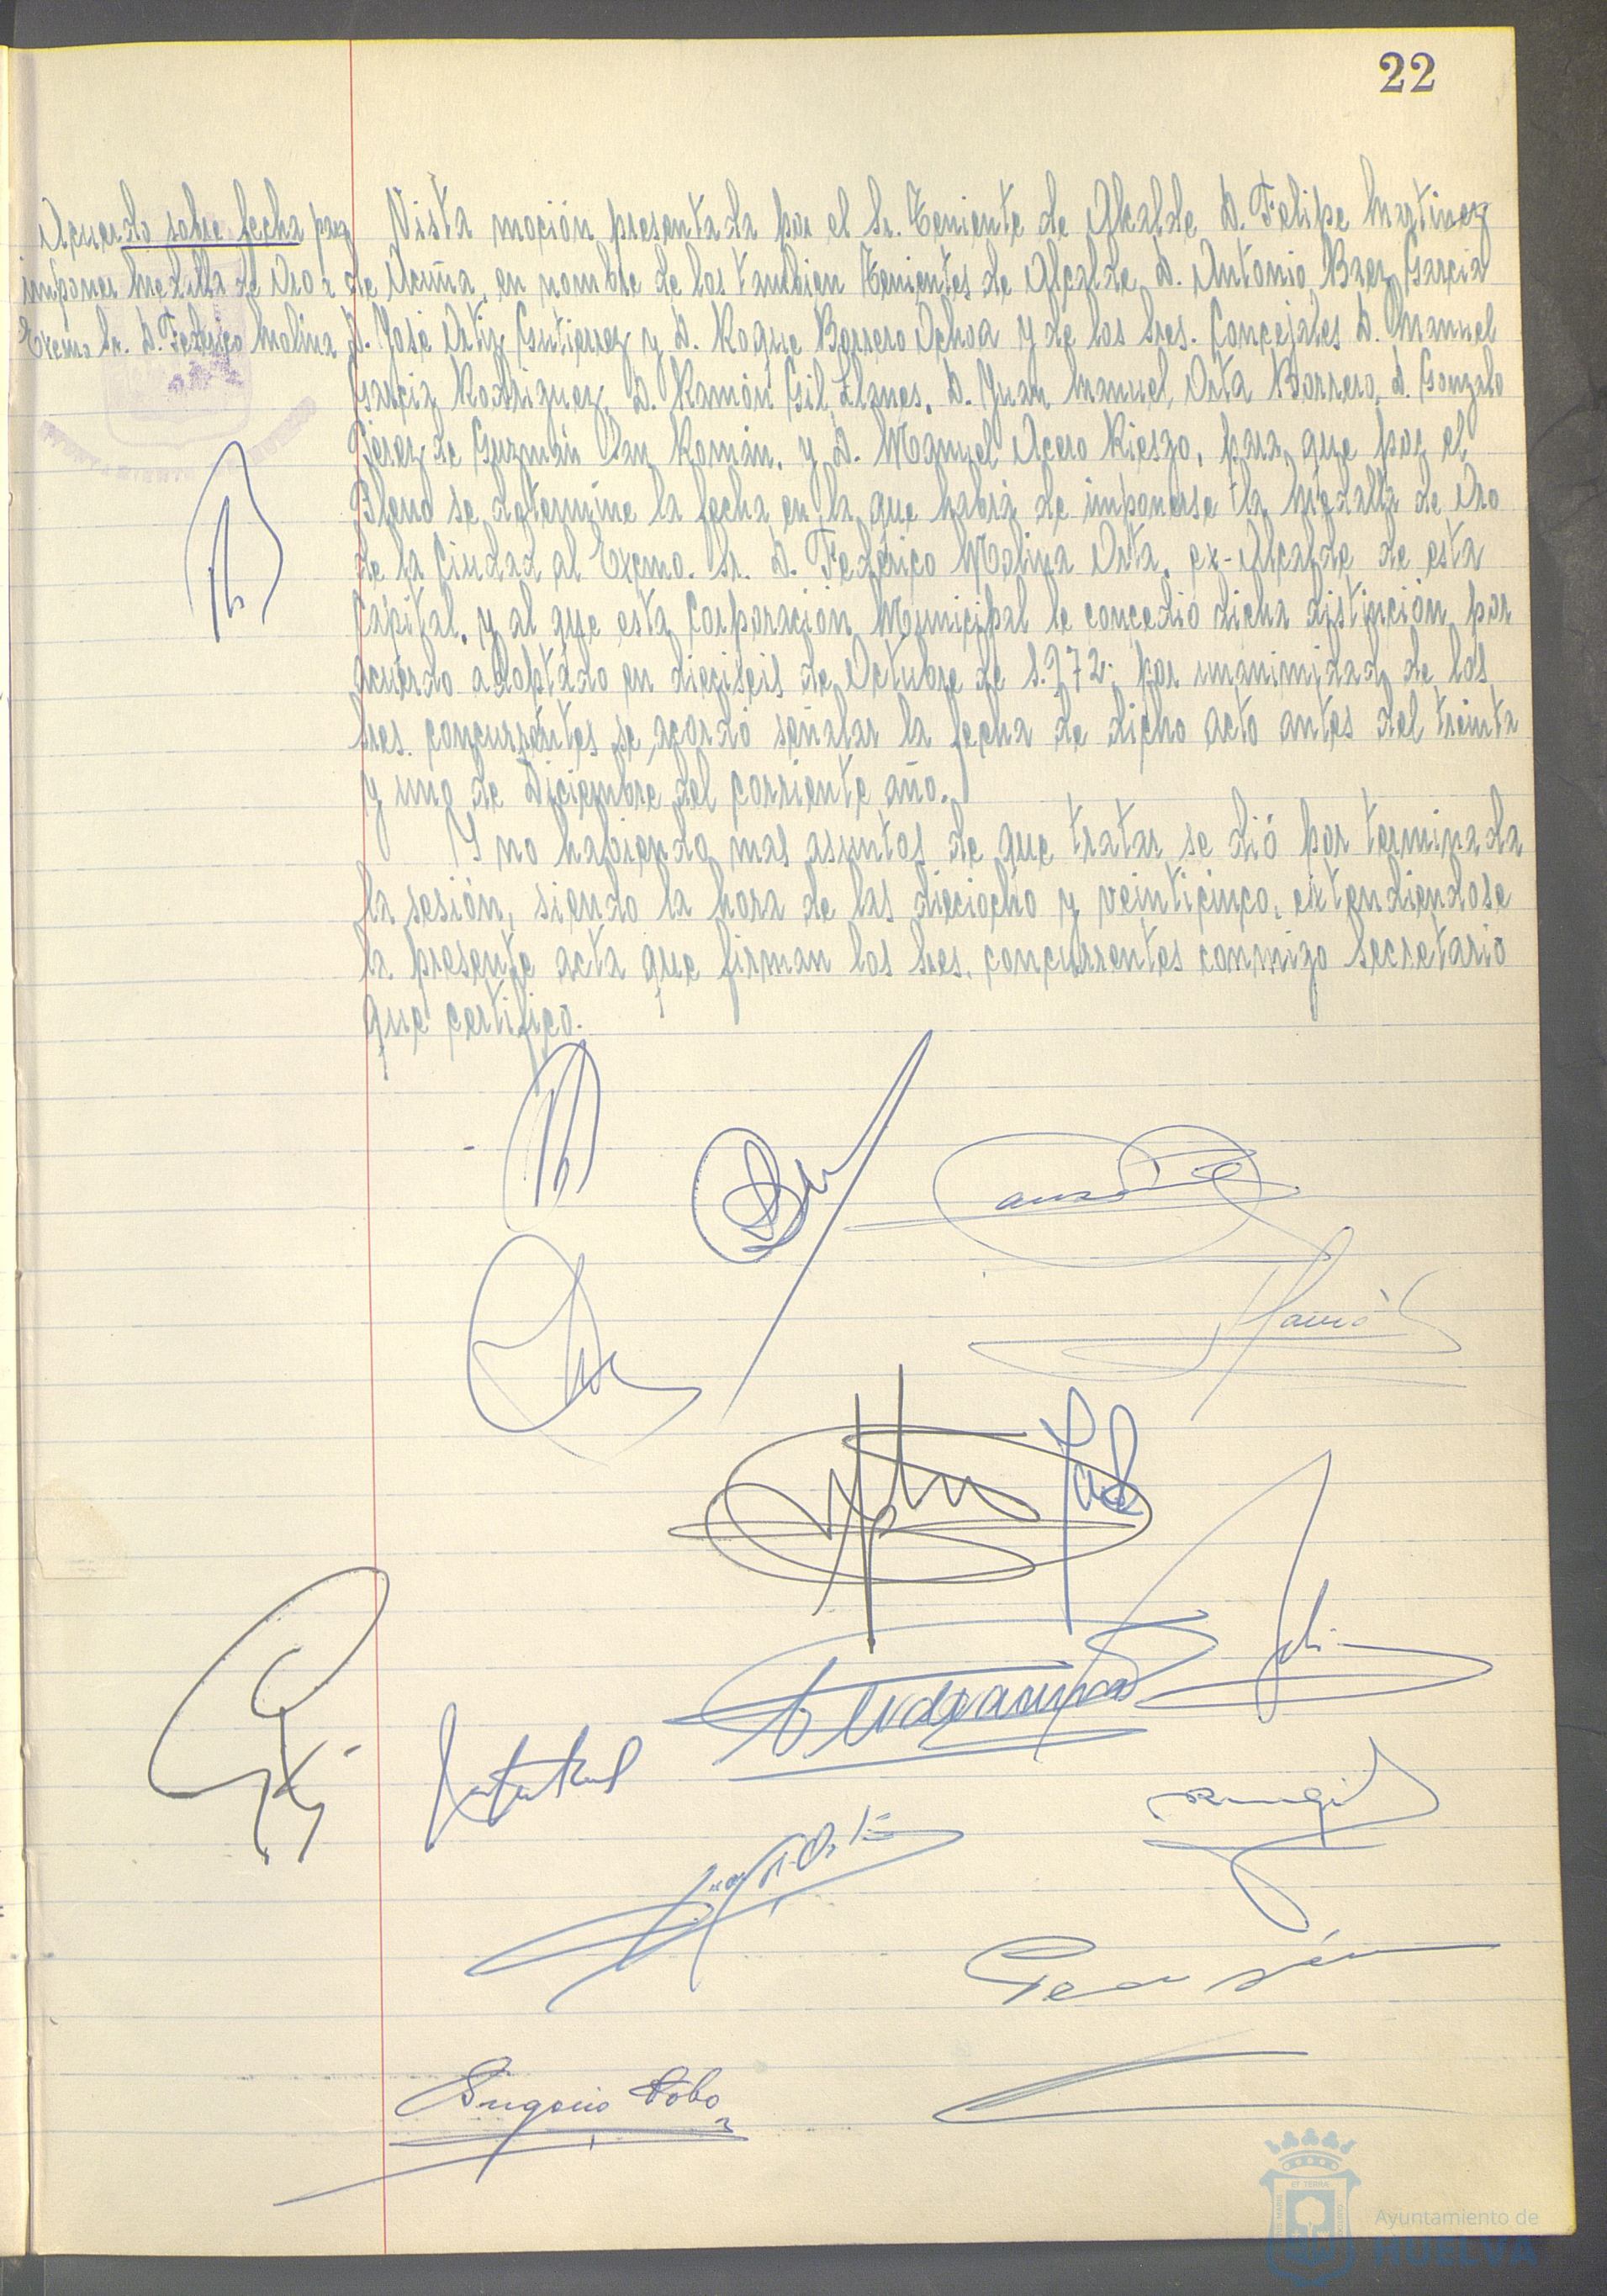 22
Acuerdo sobre fecha para
imponer Medalla de Oro a
Excmo Sr. D. Federico Molina
Vista moción presentada por el Sr. Teniente de Alcalde D. Felipe Martinez
de Acuña, en nombre de los tambien Tenientes de Alcalde D. Antonio Baez Garcia
D. José Ortiz Gutierrez y D. Roque Borrero Ochoa y de los Sres. Concejales D. Manuel
Garcia Rodriguez, D. Ramón Gil Llanes, D. Juan Manuel Orta Borrero, D. Gonzalo
Gerez de Guzmán San Román, y D. Manuel Acero Riesgo, para que por el
Pleno se determine la fecha en la que habrá de imponerse la Medalla de Oro
de la Ciudad al Excmo. Sr. D. Federico Molina Orta, ex-Alcalde de esta
Capital, y al que esta Corporación Municipal le concedió dicha distinción por
acuerdo adoptado en dieciseis de Octubre de 1.972; por unanimidad de los
Sres. concurrentes se acordó señalar la fecha de dicho acto antes del treinta
y uno de Diciembre del corriente año.
Y no habiendo mas asuntos de que tratar se dió por terminada
la sesión, siendo la hora de las dieciocho y veinticinco, extendiendose
la presente acta que firman los Sres. concurrentes conmigo Secretario
que certifico.
Eugenio Pobo
Ayuntamiento de
HUELVA